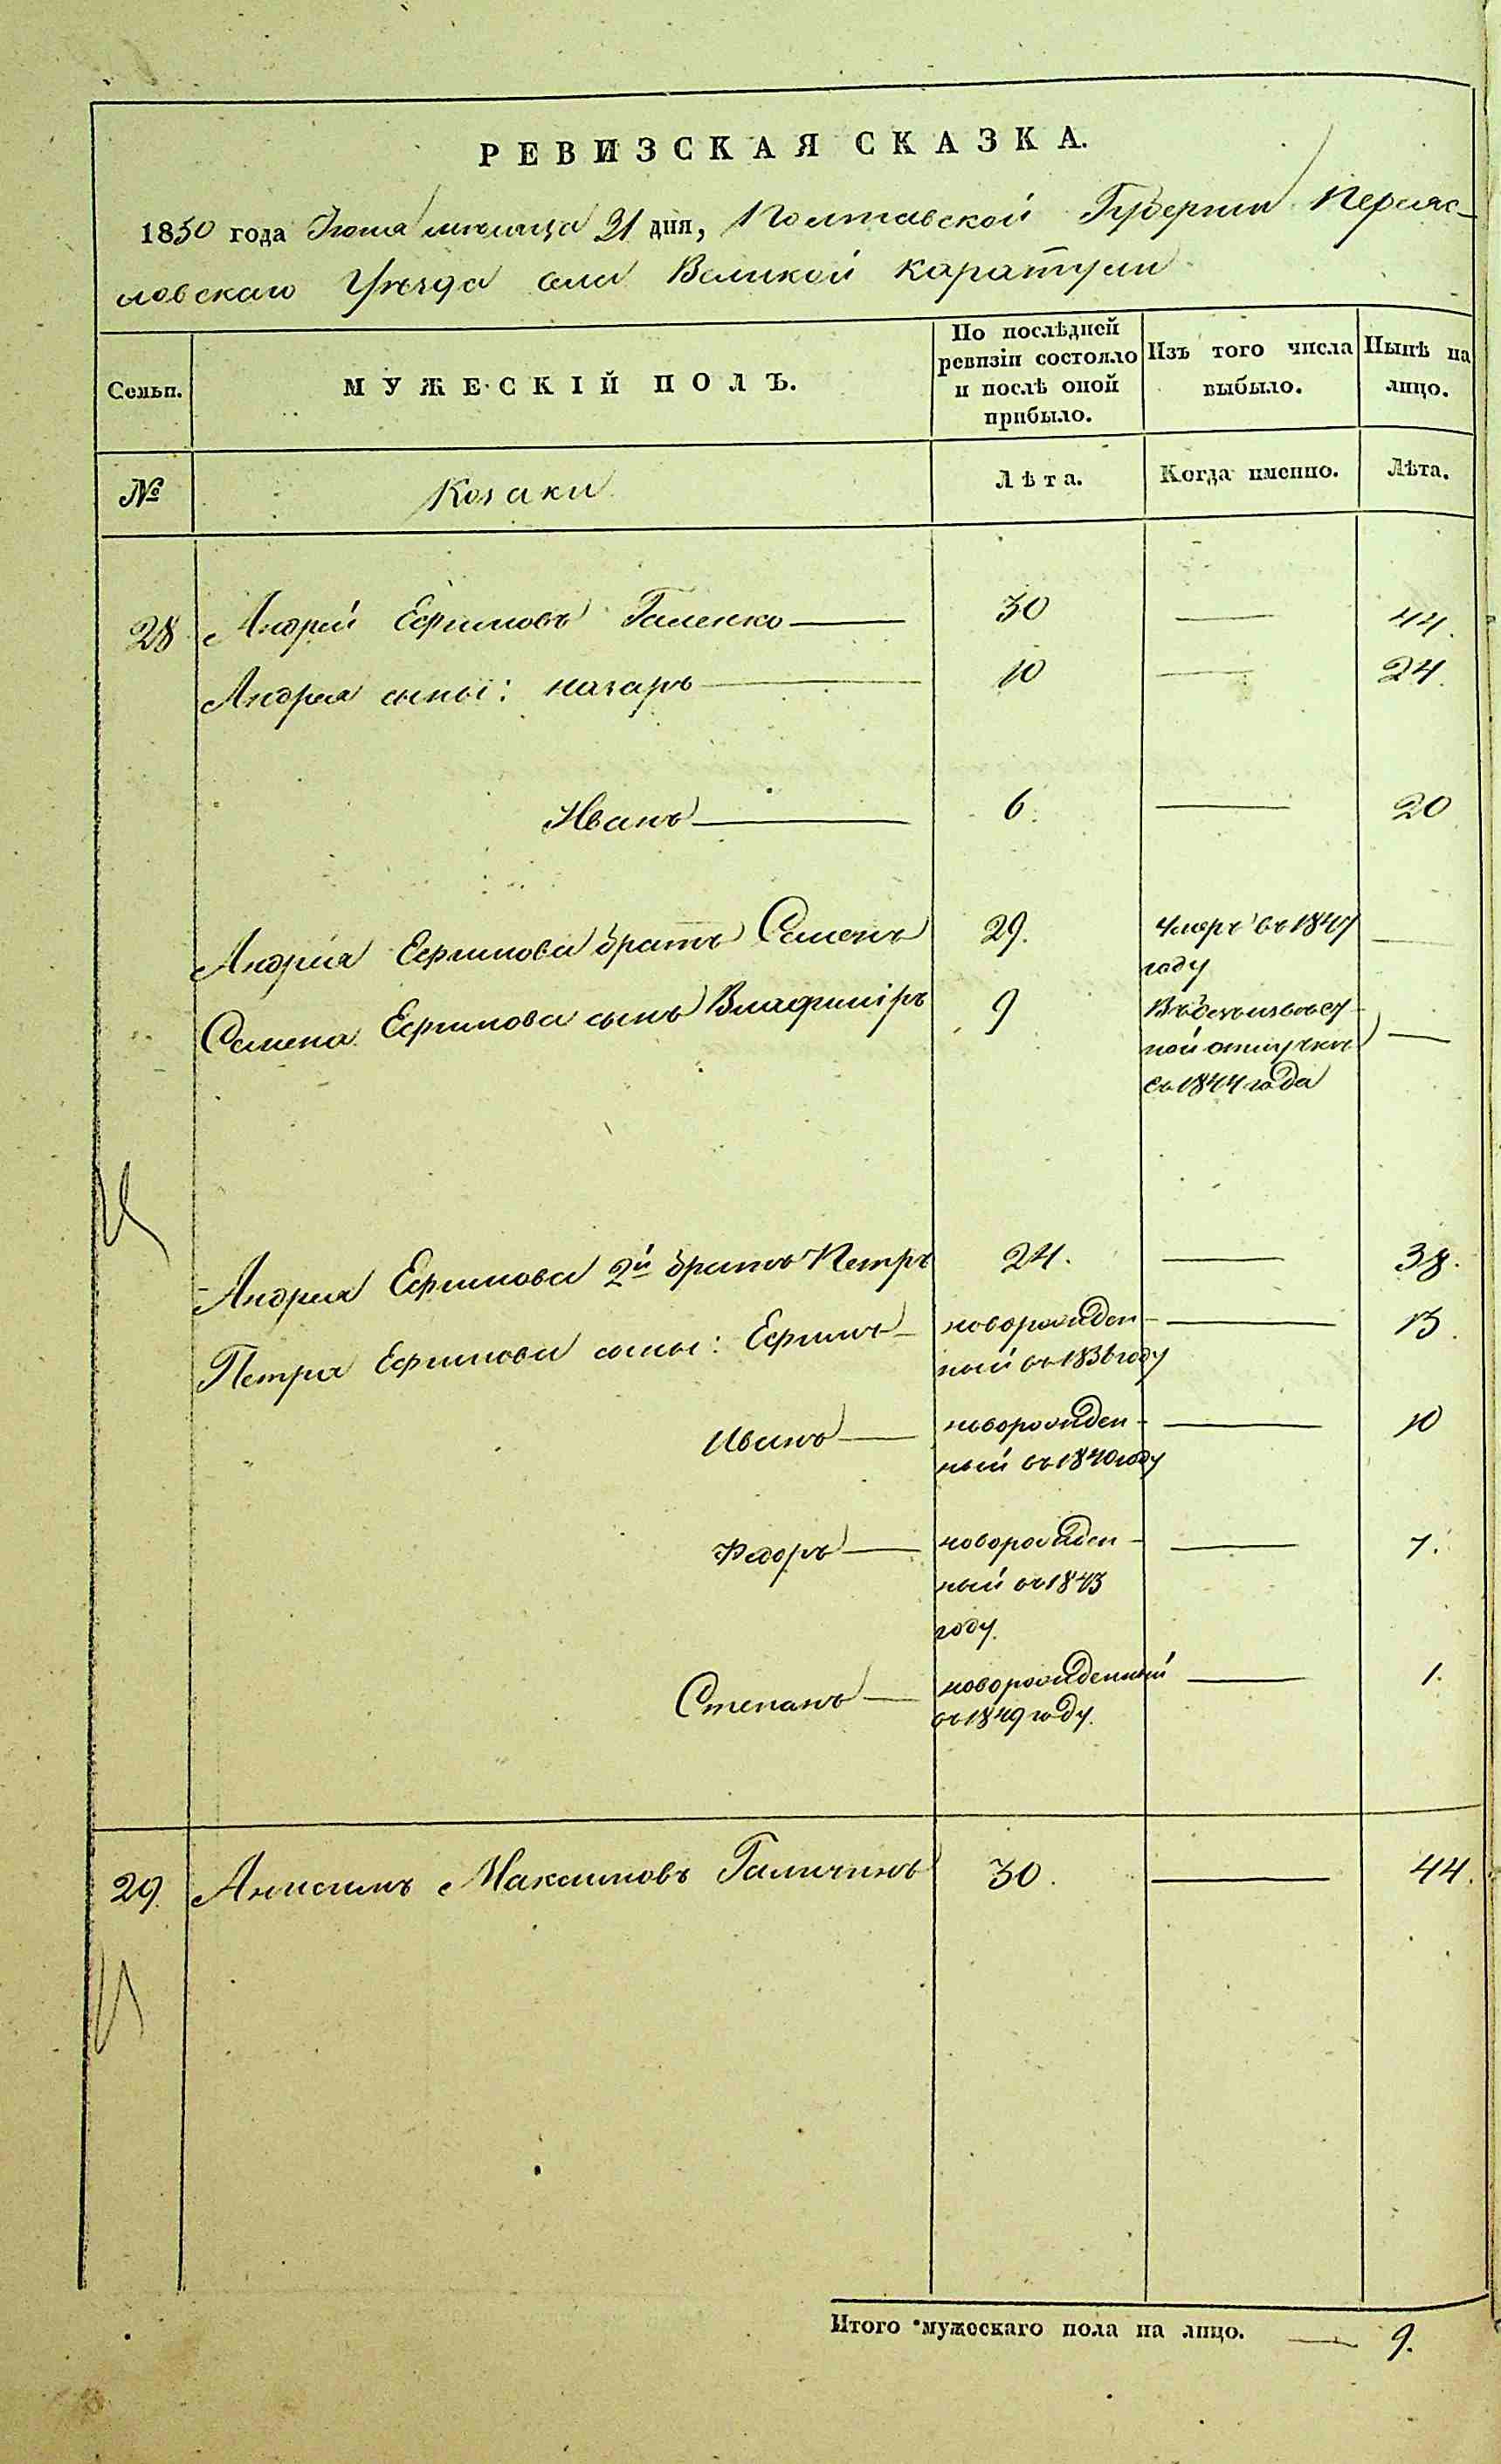 РЕВИЗСКАЯ СКАЗКА.
1850 года Июня месяца 21 дня, Полтавской Губернии Переяс-
ловскаго Уезда села Великой Каратули
Семьи.
МУЖЕСКІЙ ПОЛЪ.
По послѣдней ревизіи состояло и послѣ оной прибыло.
Изъ того числа выбыло.
Нынѣ на лицо.
№
Козаки
Лѣта.
Когда именно.
Лѣта.
28 Андрей Ефимовъ Галенко — 30 — 44.
Андрея сыны: Назаръ — 10 — 24.
Иванъ — 6. — 20
Андрея Ефимова братъ Семенъ 29. Умеръ въ 1847 году —
Семена Ефимова сынъ Владиміръ 9 ной отлучке съ 1844 года —
Андрея Ефимова 2й братъ Петръ 24. — 38.
Петра Ефимова сыны: Ефимъ — новорожден-ный въ 1836 году — 13.
Иванъ — новорожден-ный въ 1840 году — 10
Федоръ — новорожден-ный въ 1843 году. — 7.
Степанъ — новорожденный въ 1849 году. — 1.
29. Анисимъ Максимовъ Галичинъ 30. — 44.
Итого мужескаго пола на лицо. — 9.